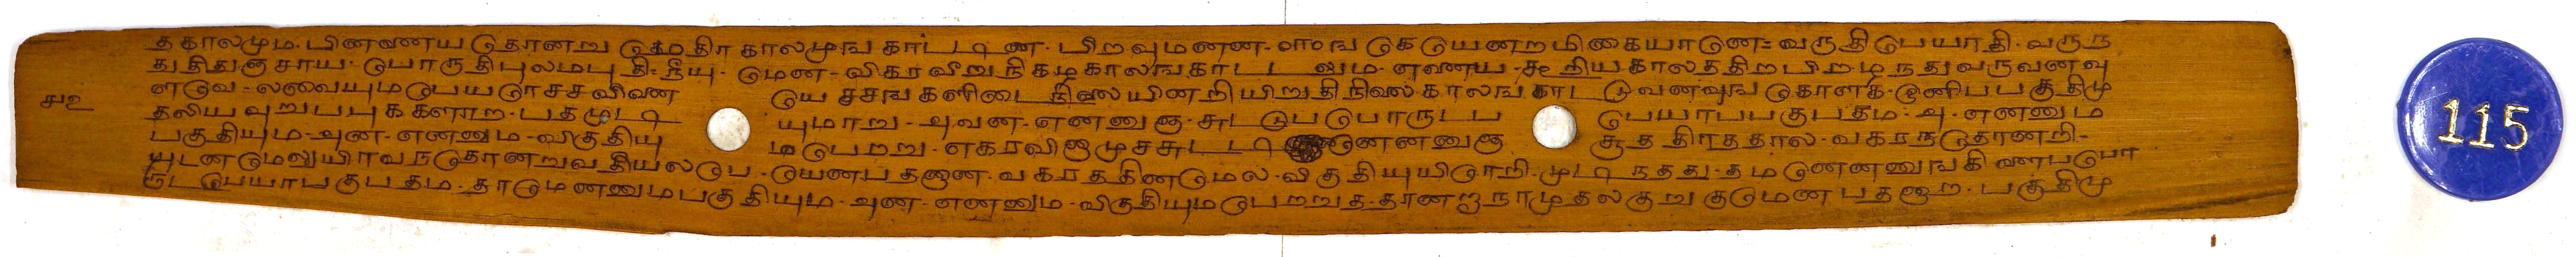 தகாலமும. பினணைய தோனறு மெதிர காலமுங காட்டின. பிறவுமனன. ஈங கெயெனற மிகையானே= வருதி பெயரதி. வருந
துதிதுஞசாய. பொருதிபுலமபு தி= நீயு. மேன- விகரவீறு நிகழகாலங காடடலும. எணைய- கூறியகாலததிறபிறழநதுவருவனவு
ளவே- லவையுமபெயரெசசவினை யெசசங களிடைநிலையினறியிறுதிநிலைகாலங காடடுவனவுங கொளக. இனிபபகுதிமு
௯௨
தலியவுறுபபுககளாற. பதமுடி யுமாறு- அவன- எனனுஞ. சுடடுபபொருடப பெயரபபகுபதம. அ. எனனும
பகுதியும- அன- எனனும- விகுதியு மபெறறு. எகரவினாமுசசுடடி னெனனுஞ சூததிரததால- வகரநதோனறி-
யுடனமேலுயிரவநதொனறுவதியலபே. யெனபதனான. வகரததினமேல. விகுதியுயிரேறி. முடிநதது. தமனெனனுங கிளைபபொ
ருடபெயரபகுபதம. தாமெனனுமபகுதியும. அன- எனனும- விகுதியுமபெறறுத. தானறாநாமுதலகுறுகுமெனபதனாற. பகுதிமு
115